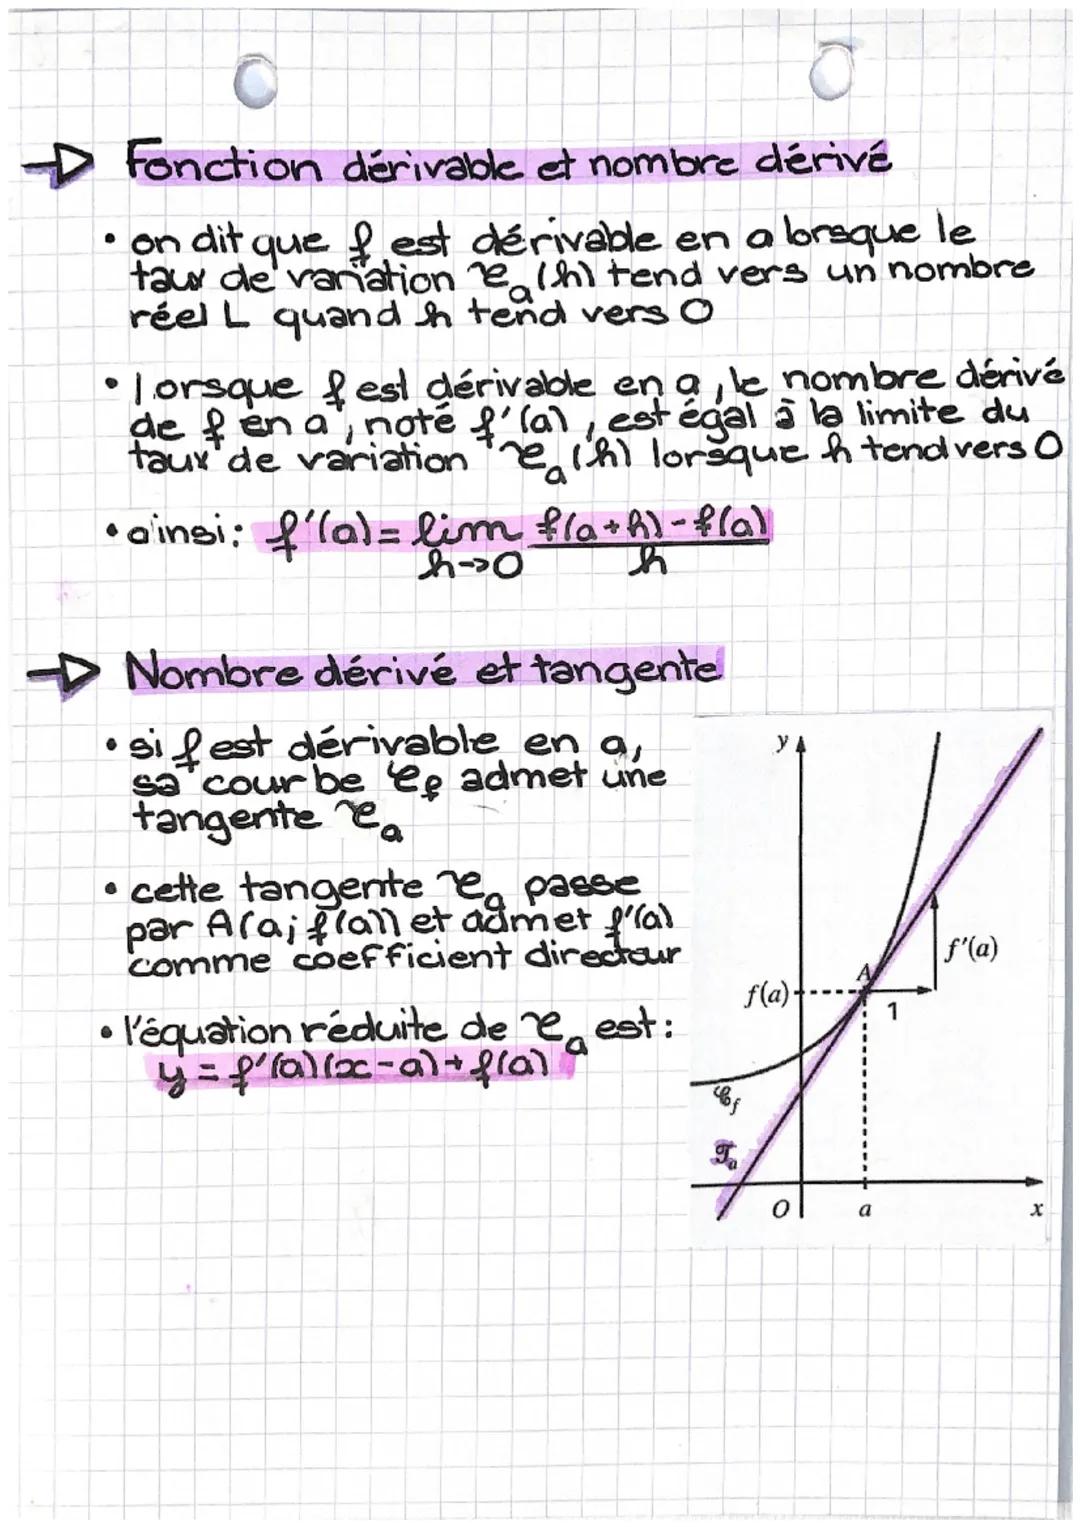 Fonction dérivable et nombre dérivé
• on dit que f est dérivable en a lorsque le
taux de variation 𝒞a(h) tend vers un nombre
réel L quand h tend vers 0
• lorsque f est dérivable en a, le nombre dérivé
de f en a, noté f'(a), est égal à la limite du
taux de variation 𝒞a(h) lorsque h tend vers 0
• ainsi: f'(a) = lim f(a+h)-f(a)
h→0 h
Nombre dérivé et tangente
• si f est dérivable en a,
sa courbe 𝒞f admet une
tangente 𝒞a
• cette tangente 𝒞a passe
par A(a; f(a)) et admet f'(a)
comme coefficient directeur
• l'équation réduite de 𝒞a est:
y = f'(a)(x-a)+f(a)
y
f'(a)
A
f(a)
1
𝒞f
𝒯a
O
a
x